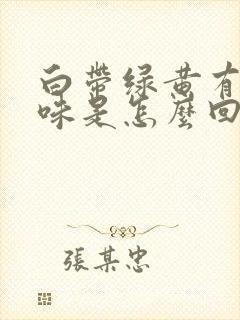 白帶綠黃有
味是怎麼回
張某忠